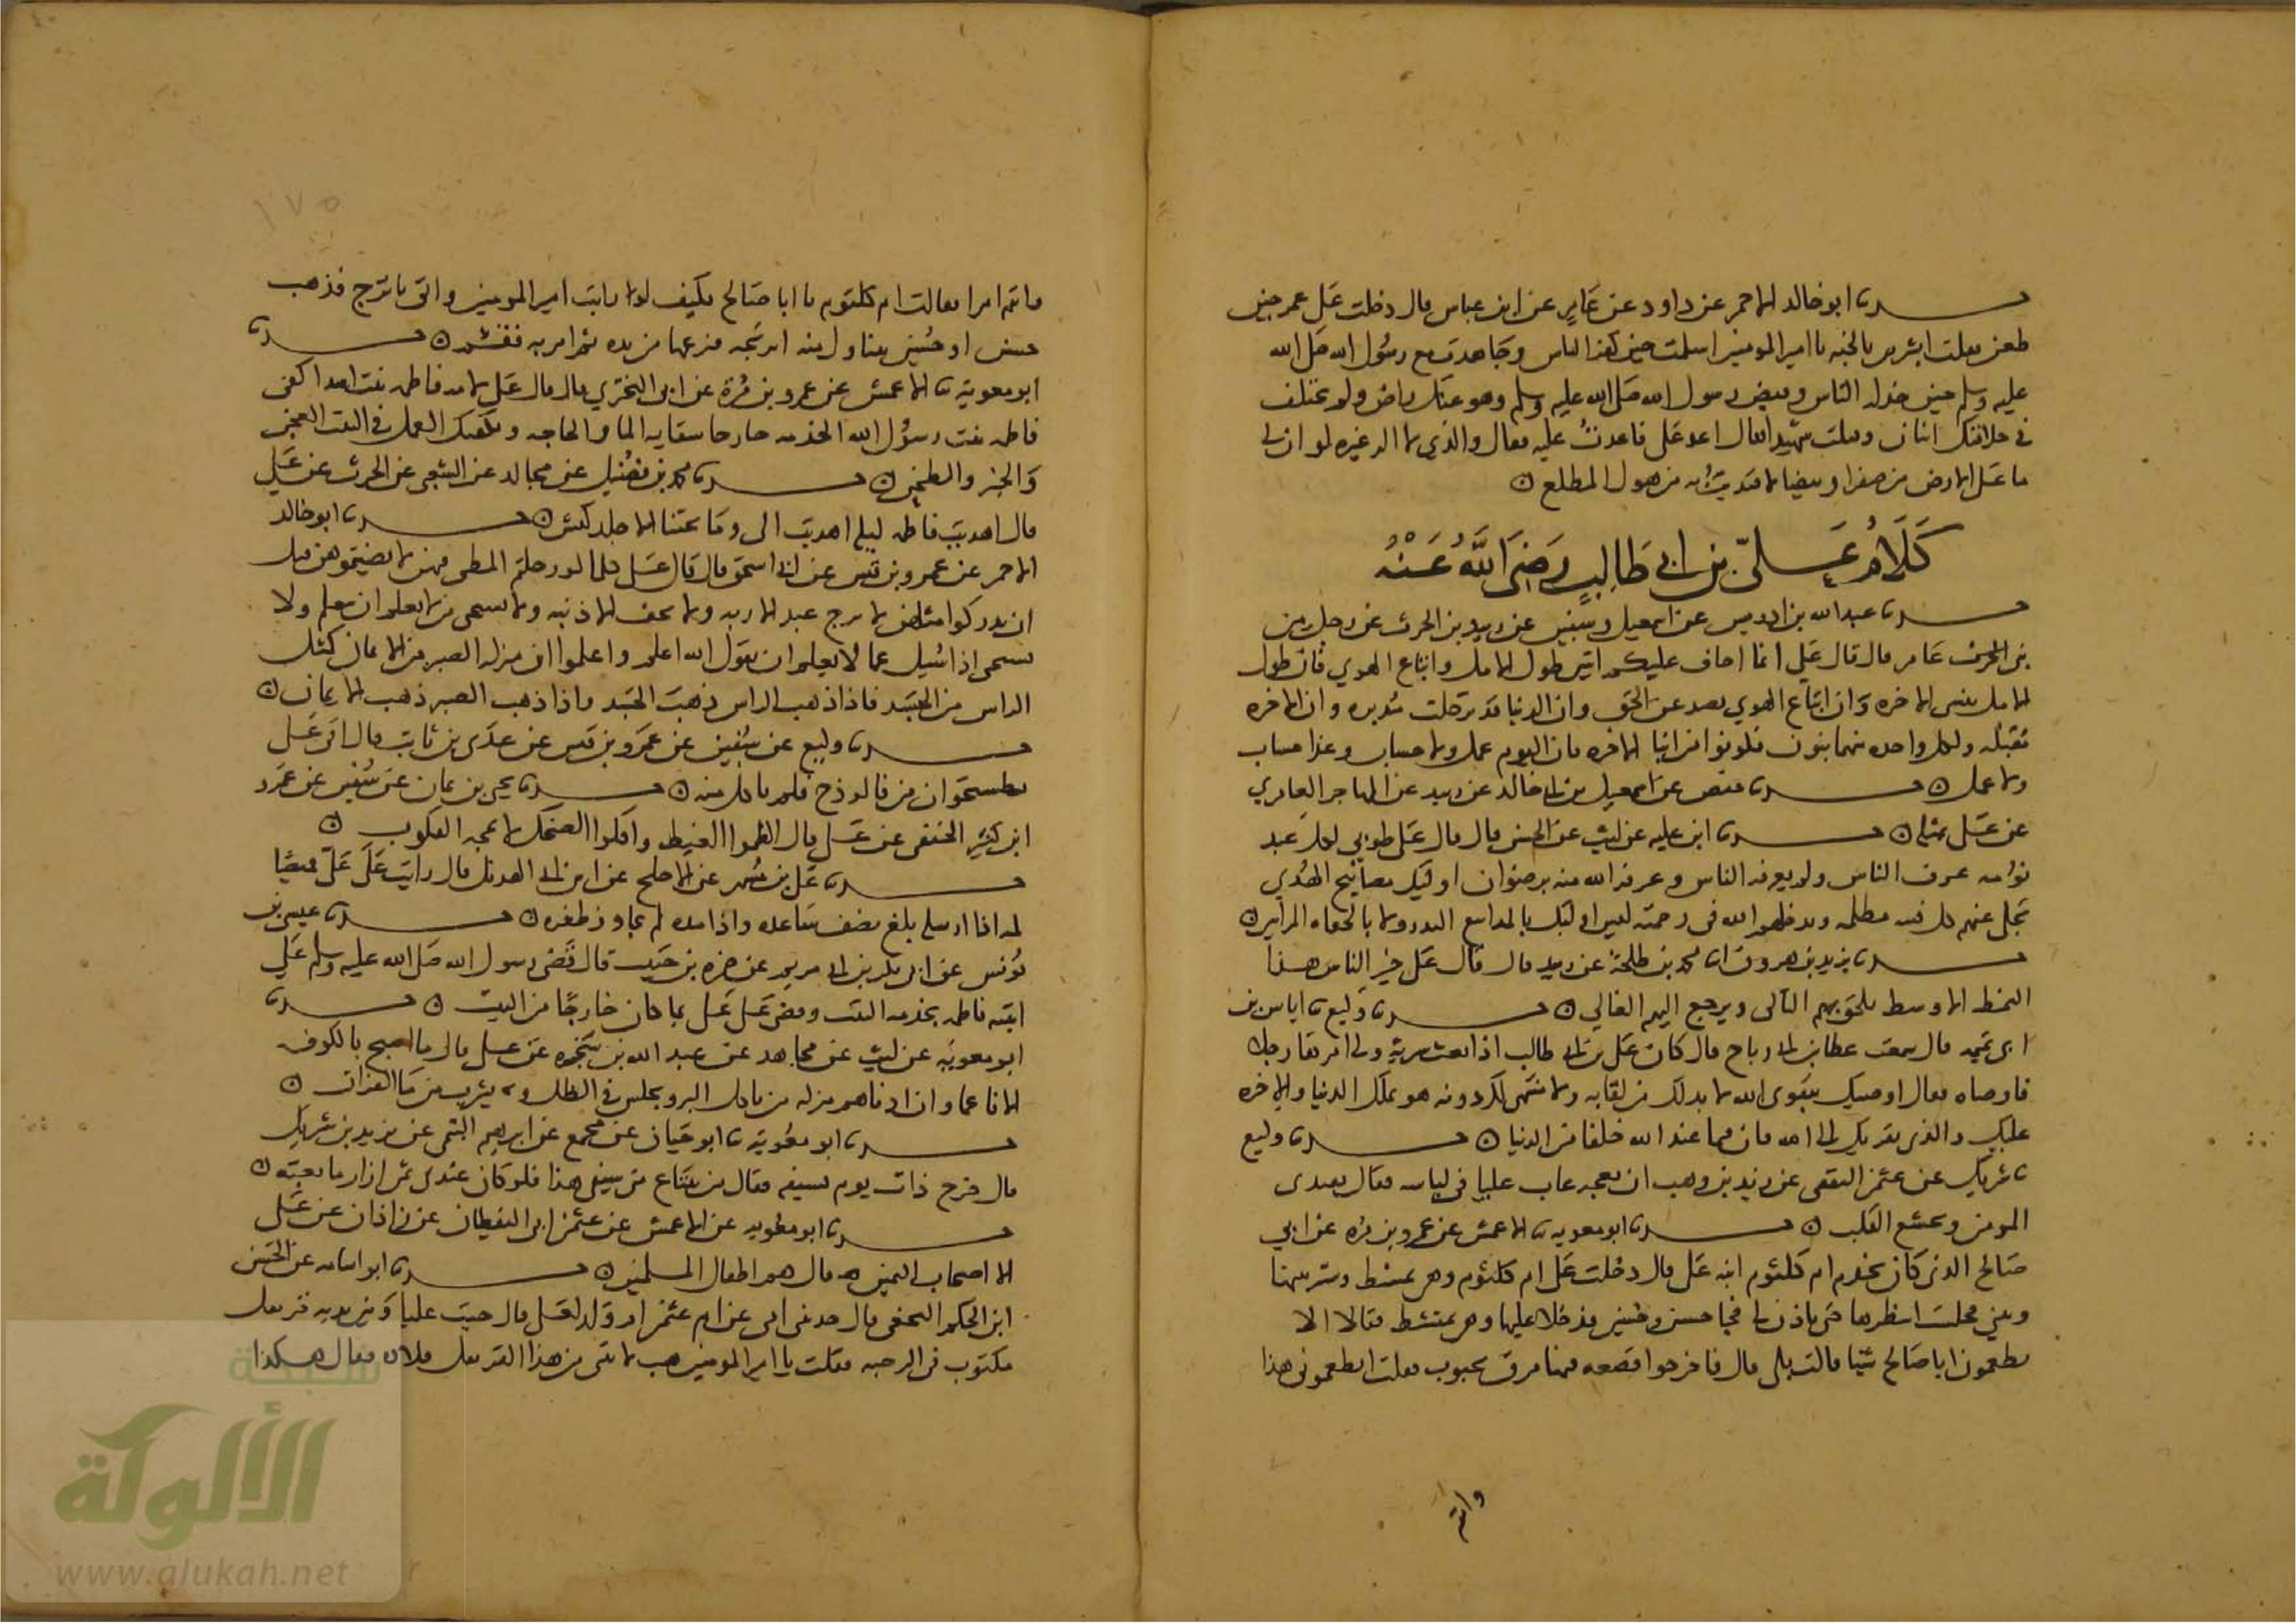 حدثنا ابو خالد الاحمر عن داود عن عامر عن ابن عباس قال دخلت على عمر حين
طعن فقلت ابشر بالجنة يا امير المومنين اسلمت حين كفر الناس وجاهدت مع رسول الله صلى الله
عليه وسلم حين خذله الناس وقبض رسول الله صلى الله عليه وسلم وهو عنك راض ولم يختلف
في خلافتك اثنان وقتلت شهيدا فقال اعد علي فاعدت عليه فقال والذي لا اله غيره لو ان لي
ما على الارض من صفرا وبيضا لافتديت به من هول المطلع
كلام علي بن ابي طالب رضي الله عنه
حدثنا عبد الله بن ادريس عن اسمعيل وسفين عن زبيد بن الحرث عن رجل من
بني عامر قال قال علي انما اخاف عليكم اثنتين طول الامل واتباع الهوي فان طول
الامل ينسى الاخره وان اتباع الهوي يصد عن الحق وان الدنيا قد ترحلت مدبره وان الاخره
مقبله ولكل واحده منهما بنون فكونوا من ابنا الاخره فان اليوم عمل ولا حساب وغدا حساب
ولا عمل حدثنا حفص عن اسمعيل بن ابي خالد عن زبيد عن المهاجر العامري
عن علي بمثله حدثنا ابن عليه عن ليث عن الحسن قال قال علي طوبى لكل عبد
نومه عرف الناس ولم يعرفه الناس وعرفه الله منه برضوان اوليك مصابيح الهدي
تجلى عنهم كل فتنه مظلمه ويدخلهم الله في رحمته ليس اوليك بالمذاييع البذر ولا بالجفاه المرايين
حدثنا يزيد بن هرون انا محمد بن طلحة عن زبيد قال قال علي خير الناس هذا
النمط الاوسط يلحق بهم التالي ويرجع اليهم الغالي حدثنا وكيع ثنا اياس بن
ابي تميمه قال سمعت عطا بن ابي رباح قال كان علي بن ابي طالب اذا بعث سرية ولى امرها رجلا
فاوصاه فقال اوصيك بتقوى الله لا بد لك من لقايه ولا منتهى لك دونه هو يملك الدنيا والاخره
عليك بالذي يقربك الى الله فان فيما عند الله خلفا من الدنيا حدثنا وكيع
ثنا شريك عن عثمن الثقفي عن زيد بن وهب ان بعجه عاب عليا في لباسه فقال يقتدى
المومن ويخشع القلب حدثنا ابو معويه ثنا الاعمش عن عمرو بن مره عن ابي
صالح الذي كان يخدم ام كلثوم ابنه علي قال دخلت على ام كلثوم وهي تمتشط وستر بينها
وبيني فجلست انتظرها حتى تاذن لي فجا حسن وحسين فدخلا عليها وهي تمتشط فقالا الا
تطعمون ابا صالح شيا قالت بلى قال فاخرجوا قصعه فيها مرق بحبوب فقلت اتطعموني هذا
وانتم
١٧٥
وانتم امرا فقالت ام كلثوم يا ابا صالح فكيف لو رايت امير المومنين واتي باترج فذهب
حسن او حسين يتناول منه اترجه فنزعها من يده ثم امر به فقسم حدثنا
ابو معوية ثنا الاعمش عن عمرو بن مرة عن ابي البختري قال قال علي لامه فاطمه بنت اسد اكفي
فاطمه بنت رسول الله الخدمه خارجا سقايه الما والحاجه وتكفيك العمل في البيت العجن
والخبز والطحن حدثنا محمد بن فضيل عن مجالد عن الشعبي عن الحرث عن علي
قال اهديت فاطمه ليله اهديت الي وما تحتنا الا جلد كبش حدثنا ابو خالد
الاحمر عن عمرو بن قيس عن ابي اسحق قال قال علي كلمات لو رحلتم المطي فيهن لانضيتموهن قبل
ان تدركوا مثلهن لا يرج عبد الا ربه ولا يخف الا ذنبه ولا يستحي من لا يعلم ان يتعلم ولا
يستحي اذا سيل عما لا يعلم ان يقول الله اعلم واعلموا ان منزله الصبر من الايمان كمثل
الراس من الجسد فاذا ذهب الراس ذهب الجسد واذا ذهب الصبر ذهب الايمان
حدثنا وكيع عن سفين عن عمرو بن قيس عن عدى بن ثابت قال اتى علي
بطستخوان من فالوذج فلم ياكل منه حدثنا يحيى بن يمان عن سفين عن عمرو
ابن كثير الحنفي عن علي قال اكظموا الغيظ واقلوا الضحك لا تمجه القلوب
حدثنا علي بن مسهر عن الاجلح عن ابن ابي الهذيل قال رايت على علي قميصا
كمه اذا ارسله بلغ نصف ساعده واذا مده لم يجاوز ظفره حدثنا عيسى بن
يونس عن ابي بكر بن ابي مريم عن ضمره بن حبيب قال قضى رسول الله صلى الله عليه وسلم على
ابنته فاطمه بخدمه البيت وقضى على علي بما كان خارجا من البيت حدثنا
ابو معويه عن ليث عن مجاهد عن عبد الله بن سخبره عن علي قال ما اصبح بالكوفه
الا ناعما وان ادناهم منزله من ياكل البر ويجلس في الظل ويشرب من ما الفرات
حدثنا ابو معوية ثنا ابو حيان عن مجمع عن ابرهيم التيمي عن يزيد بن شريك
قال خرج علي ذات يوم بسيفه فقال من يبتاع مني سيفي هذا فلو كان عندي ثمن ازار ما بعته
حدثنا ابو معويه عن الاعمش عن عثمن ابي اليقظان عن زاذان عن علي
الا اصحاب اليمين قال هم اطفال المسلمين حدثنا ابو اسامه عن الحسن
ابن الحكم النخعي قال حدثتني امي عن ام عثمن ام ولد لعلي قال جيت عليا وبين يديه قرنفل
مكتوب في الرحبه فقلت يا امير المومنين هب لابنتي من هذا القرنفل قلاده فقال هكذا
شبكة
الألوكة
www.alukah.net